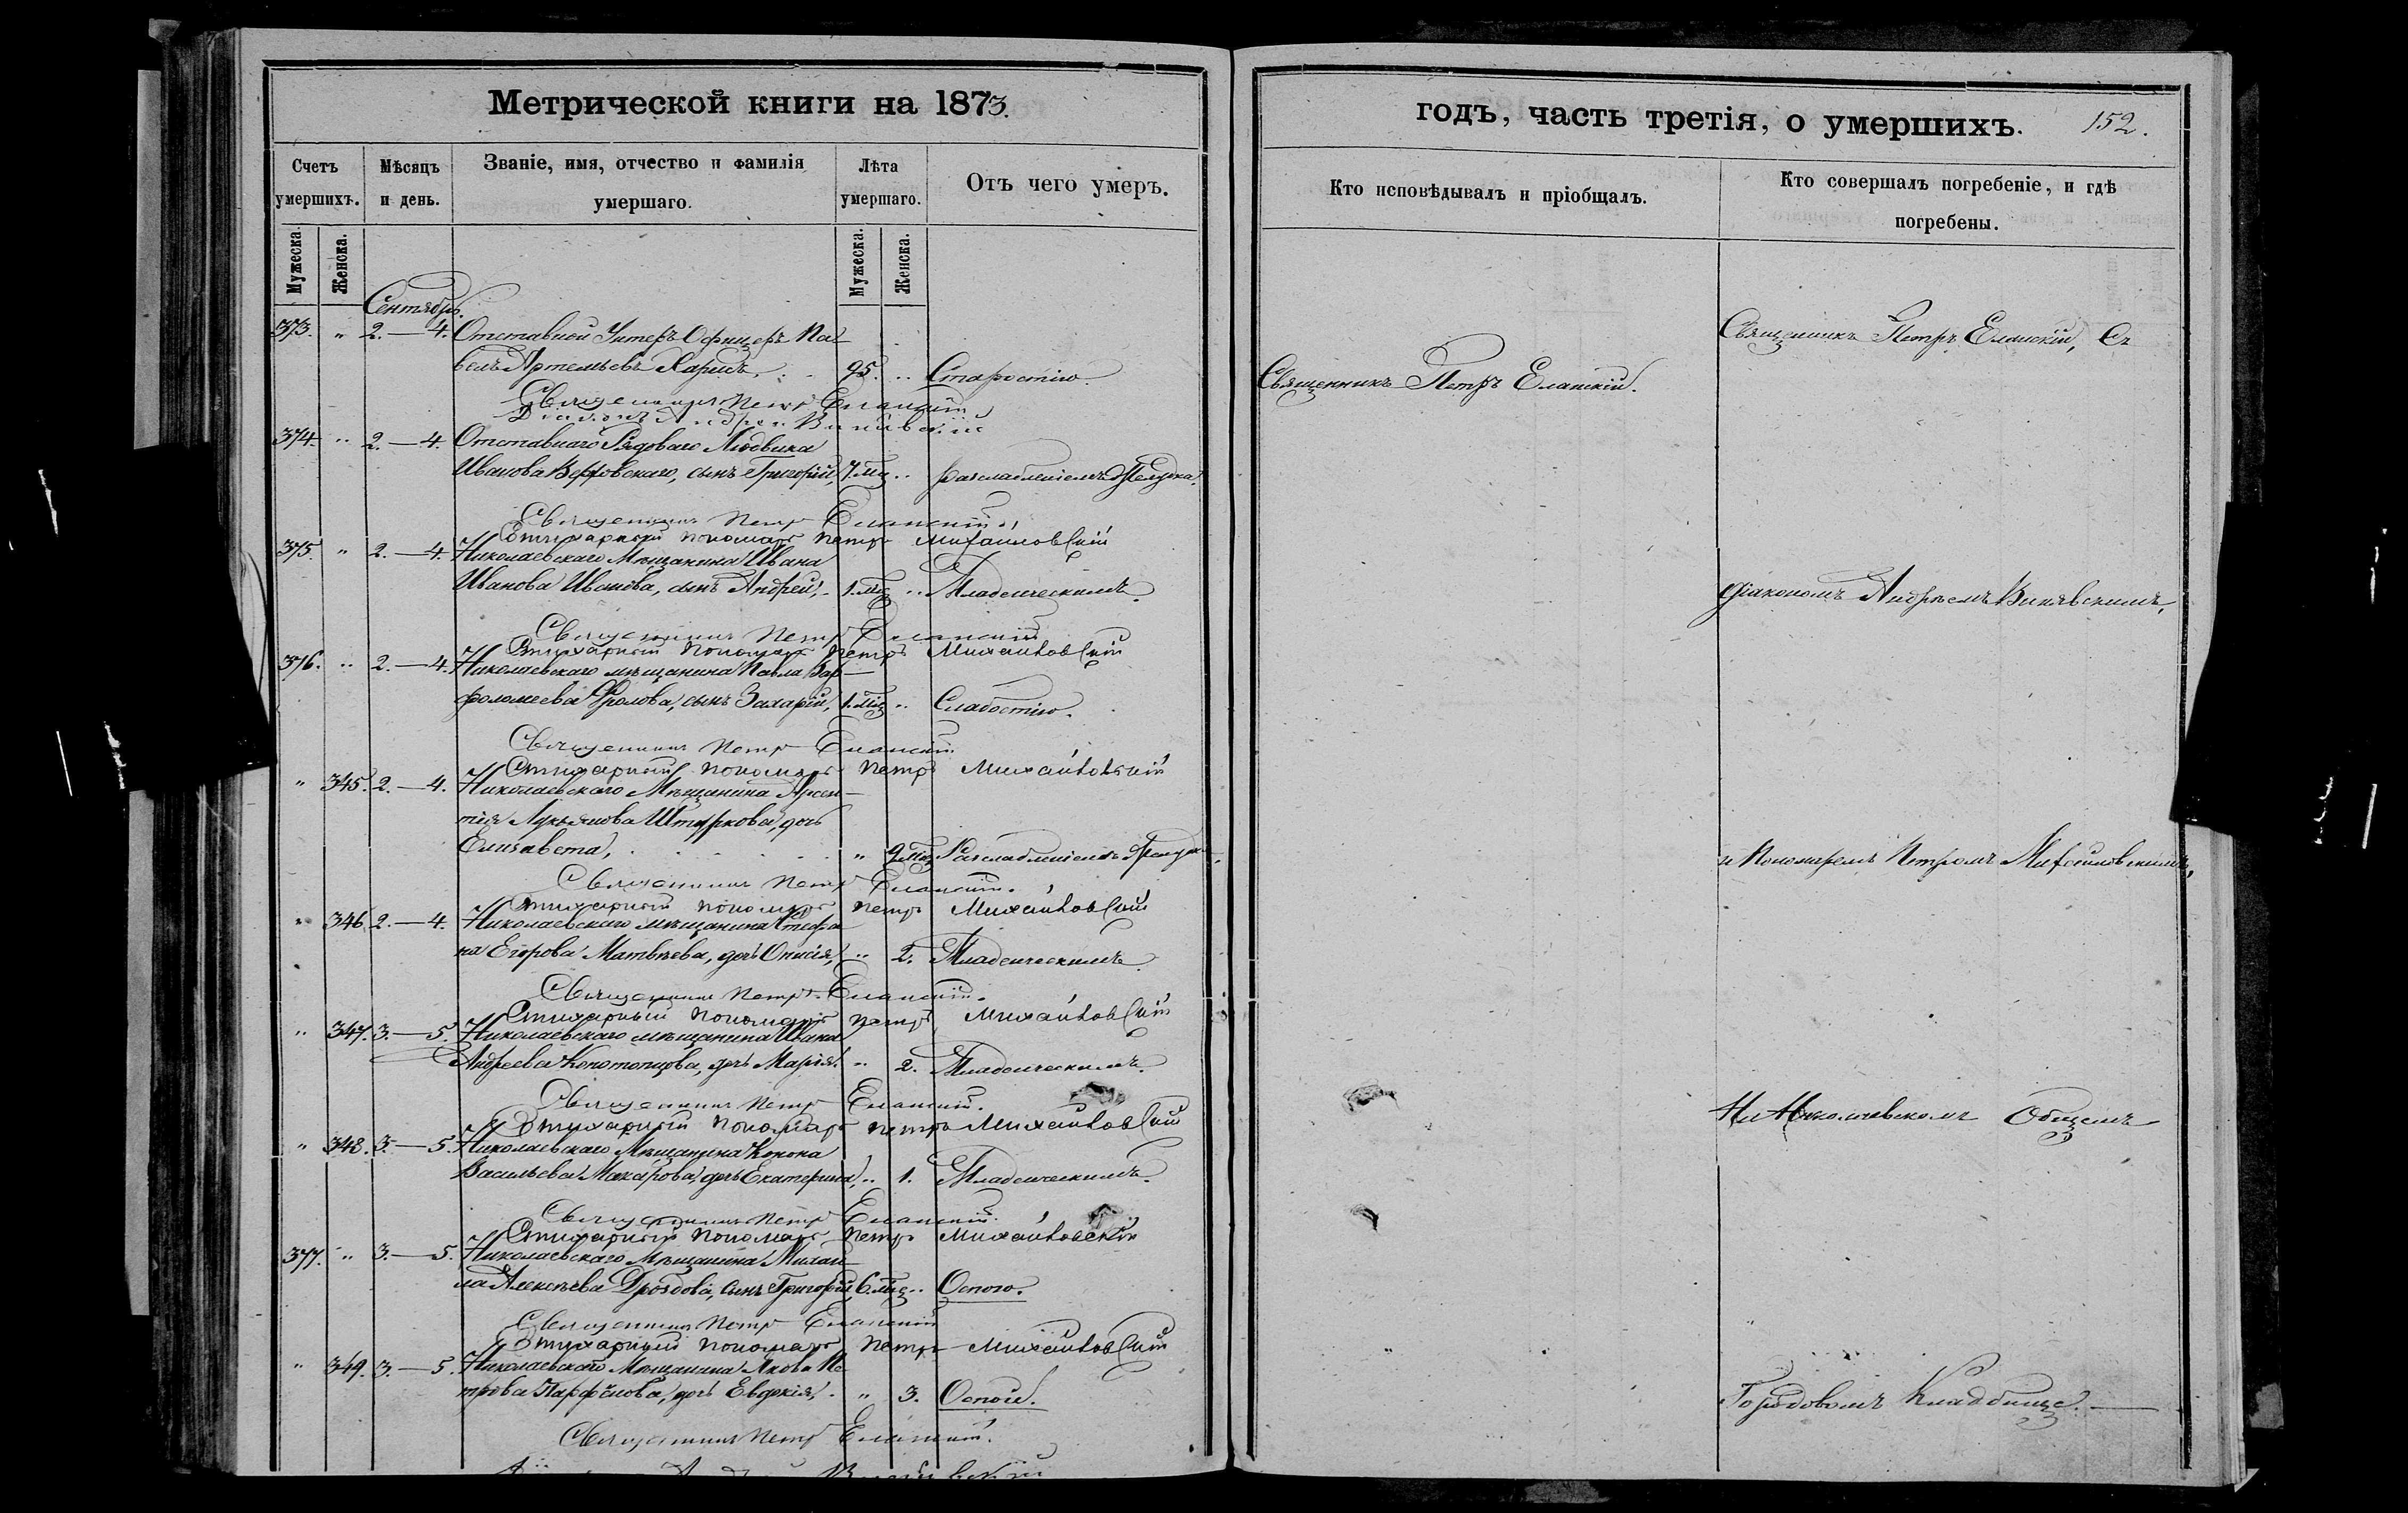 Метрической книги на 1873.
Счетъ умершихъ.
Мѣсяцъ и день.
Званіе, имя, отчество и фамилія умершаго.
Лѣта умершаго.
Отъ чего умеръ.
Мужеска.
Женска.
Мужеска.
Женска.
Сентябрь.
373. " 2.—4. Отставной Унтеръ Офицеръ Па-
велъ Артемьевъ 95. " Старостію.
Священникъ Петръ Еланскій
Діаконъ Андрей Винявскій
374. " 2.—4. Отставнаго Рядоваго Людвика
Иванова сынъ Григорій, 7.мѣс " разслабленіемъ желудка.
Священникъ Петръ Еланскій.
Стихарный пономарь Петръ Михайловскій
375. " 2.—4. Николаевскаго Мѣщанина Ивана
Иванова сынъ Андрей, 1.мѣс " Младенческимъ.
Священникъ Петръ Еланскій
Стихарный пономарь Петръ Михайловскій
376. " 2.—4. Николаевскаго мѣщанина Павла Вар-
фоломеева Фролова, сынъ Захарій, 1.мѣс " Слабостію.
Священникъ Петръ Еланскій
Стихарный пономарь Петръ Михайловскій
" 345. 2.—4. Николаевскаго Мѣщанина Арсен-
тія Лукьянова дочь
Елизавета, " 9.мѣс Разслабленіемъ желудка.
Священникъ Петръ Еланскій.
Стихарный пономарь Петръ Михайловскій
" 346. 2.—4. Николаевскаго мѣщанина Стефа-
на Егорова Матвѣева, дочь " 2. Младенческимъ.
Священникъ Петръ Еланскій.
Стихарный пономарь Петръ Михайловскій
" 347. 3.—5. Николаевскаго мѣщанина Ивана
Андреева Конотопцова, дочь Марія. " 2. Младенческимъ.
Священникъ Петръ Еланскій.
Стихарный пономарь Петръ Михайловскій
" 348. 3.—5. Николаевскаго Мѣщанина Конона
Васильева Макарова, дочь Екатерина, " 1. Младенческимъ.
Священникъ Петръ Еланскій.
Стихарный пономарь Петръ Михайловскій
377. " 3.—5. Николаевскаго Мѣщанина Михаи-
ла Алексѣева Дроздова, сынъ Григорій 6.мѣс " Оспою.
Священникъ Петръ Еланскій
Стихарный пономарь Петръ Михайловскій
" 349. 3.—5. Николаевскаго Мѣщанина Якова Пе-
трова Парфёнова, дочь Евдокія, " 3. Оспой.
Священникъ Петръ Еланскій.
годъ, часть третія, о умершихъ. 152.
Кто исповѣдывалъ и пріобщалъ.
Кто совершалъ погребеніе, и гдѣ погребены.
Священникъ Петръ Еланскій.
Священникъ Петръ Еланскій, Съ
Діакономъ Андреемъ Винявскимъ,
и Пономаремъ Петромъ Михайловскимъ,
На Николаевскомъ Общемъ
Городовомъ Кладбище.